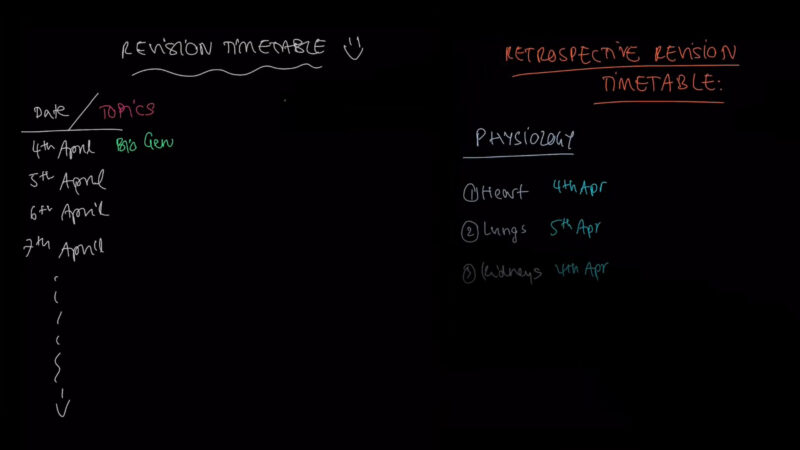 REVISION TIMETABLE
Date / TOPICS
4th April Bio Gen
5th April
6th April
7th April
RETROSPECTIVE REVISION
TIMETABLE:
PHYSIOLOGY
① Heart 4th Apr
② Lungs 5th Apr
③ Kidneys 4th Apr